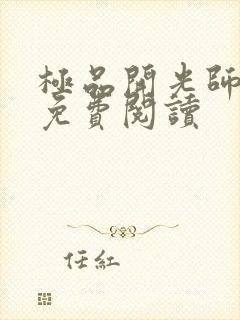 極品開光師
免費閱讀
任紅